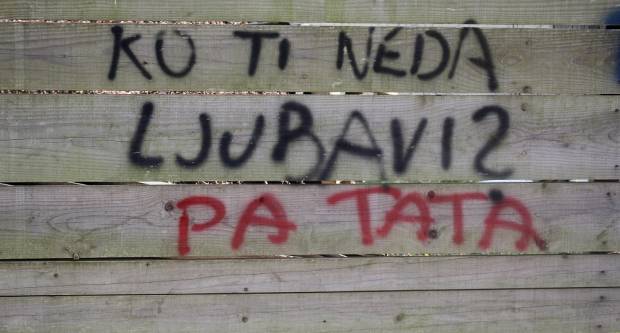 KO TI NEDA
LJUBAVI?
PA TATA